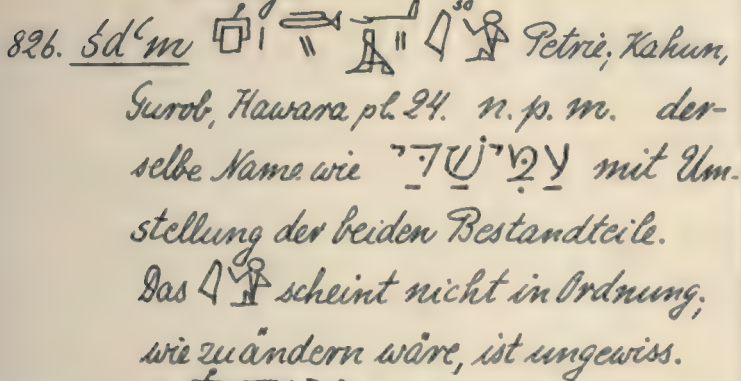 826. śdʿm Petrie, Kahun,
Gurob, Hawara pl. 24. n. p. m. der-
selbe Name wie עַמִּישַׁדַּי mit Um-
stellung der beiden Bestandteile.
Das scheint nicht in Ordnung;
wie zu ändern wäre, ist ungewiss.